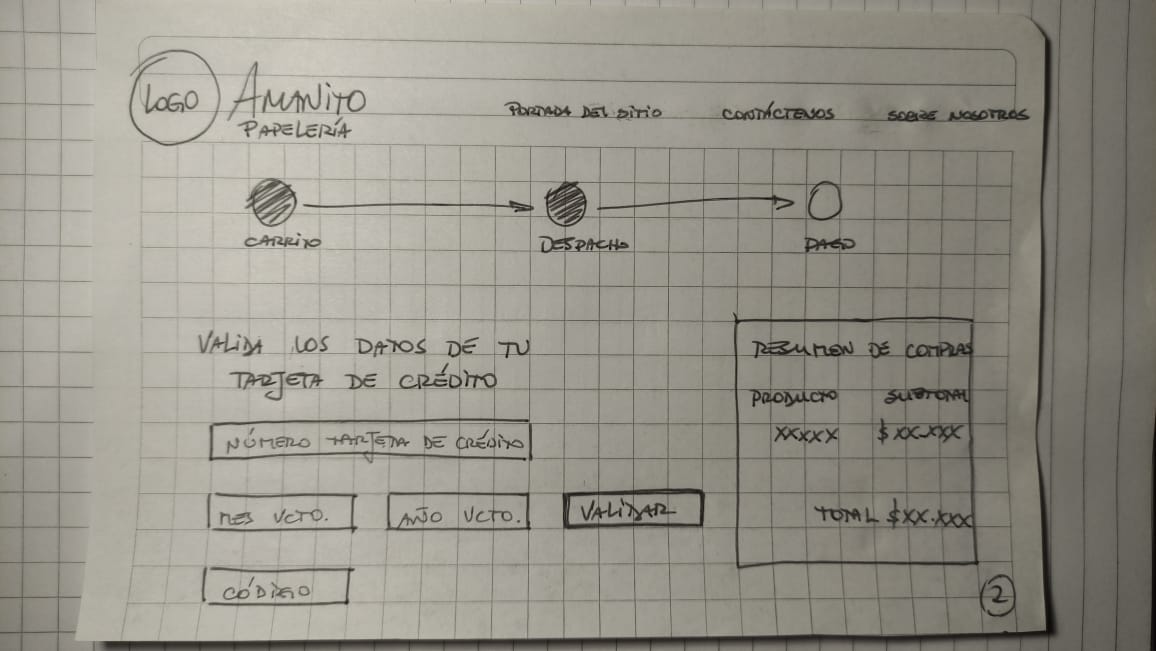 LOGO
AMANITO
PAPELERÍA
PORTADA DEL SITIO
CONTÁCTENOS
SOBRE NOSOTROS
CARRITO
DESPACHO
PAGO
VALIDA LOS DATOS DE TU
TARJETA DE CRÉDITO
NÚMERO TARJETA DE CRÉDITO
MES VCTO.
AÑO VCTO.
VALIDAR
CÓDIGO
RESUMEN DE COMPRAS
PRODUCTO SUBTOTAL
XXXXX $XX.XXX
TOTAL $XX.XXX
2